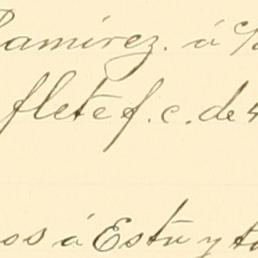 Ramirez. á
flete f. c. de 4
os á Estu y t